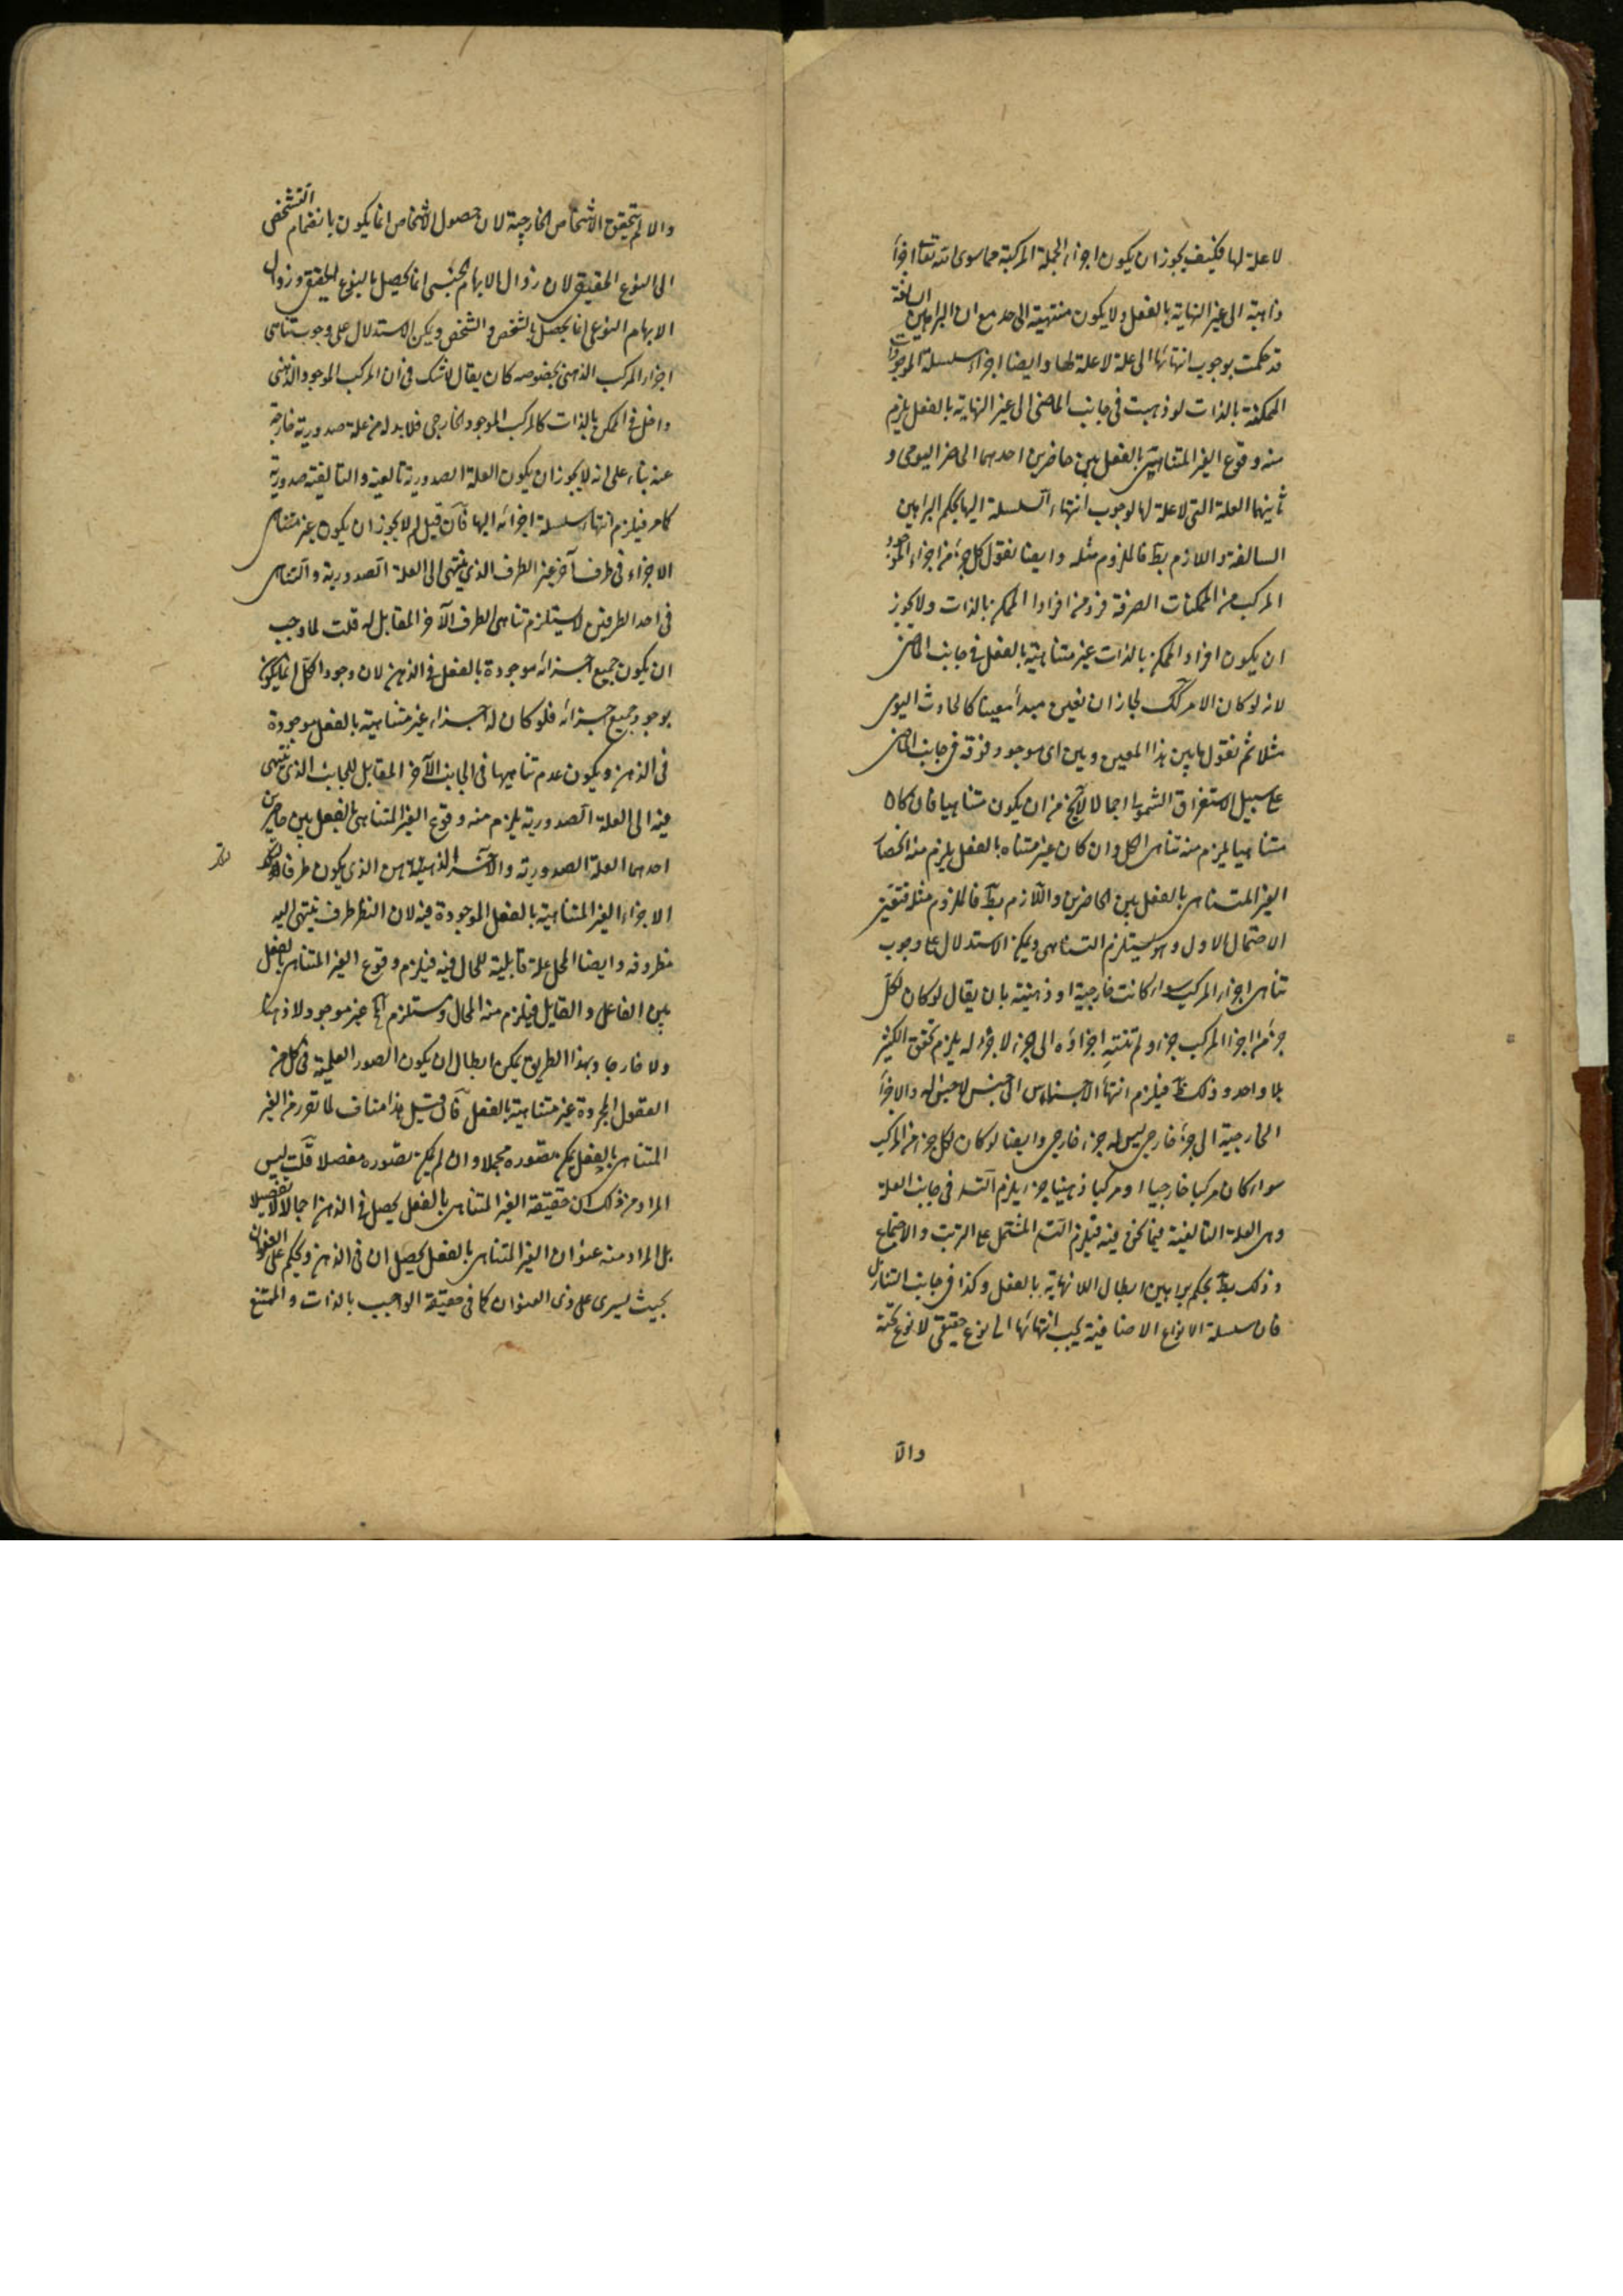 لا علة لها فكيف يجوز ان يكون اجزاء الجملة المركبة مما سوى الله تعا اجزاء
ذاهبة الى غير النهاية بالفعل ولا يكون منتهية الى حد مع ان البراهين السالفة
قد حكمت بوجوب انتهائها الى علة لا علة لها وايضا اجزاء سلسلة الموجودات
الممكنة بالذات لو ذهبت فى جانب الماضى الى غير النهاية بالفعل يلزم
منه وقوع الغير المتناهى بالفعل بين حاضرين احدهما الحاضر اليومى و
ثانيهما العلة التى لا علة لها لوجوب انتهاء السلسلة اليها بحكم البراهين
السالفة واللازم بط فالملزوم مثله وايضا نقول كل جزء من اجزاء الموجود
المركب من الممكنات الصرفة فرد من افراد الممكن بالذات ولا يجوز
ان يكون افراد الممكن بالذات غير متناهية بالفعل فى جانب الماضى
لانه لو كان الامر كك لجاز ان نعين مبدأ معينا كالحادث اليومى
مثلا ثم نقول ما بين هذا المعين وبين اى موجود فوقه فى جانب الماضى
على سبيل الاستغراق الشمولى اجمالا لا يخ من ان يكون متناهيا فان كان
متناهيا يلزم منه تناهى الكل وان كان غير متناه بالفعل يلزم منه انحصار
الغير المتناهى بالفعل بين الحاضرين واللازم بط فالملزوم مثله فتعين
الاحتمال الاول وهو يستلزم التناهى ويمكن الاستدلال على وجوب
تناهى اجزاء المركب سواء كانت خارجية او ذهنية بان يقال لو كان لكل
جزء من اجزاء المركب جزء ولم تنته اجزاؤه الى جزء لا جزء له يلزم تحقق الكثير
بلا واحد وذلك بط فيلزم انتهاء الاجناس الى جنس لا جنس له والاجزاء
الخارجية الى جزء خارجى ليس له جزء خارجى وايضا لو كان لكل جزء من المركب
سواء كان مركبا خارجيا او مركبا ذهنيا جزء يلزم التسلسل فى جانب العلة
وهى العلة التأليفية فيما نحن فيه فيلزم التسلسل المشتمل على الترتب والاجتماع
وذلك بط بحكم براهين ابطال اللانهاية بالفعل وكذا فى جانب التنازل
فان سلسلة الانواع الاضافية يجب انتهائها الى نوع حقيقى لا نوع تحته
والا
والا لم يتحقق الاشخاص الخارجية لان حصول الاشخاص انما يكون بانضمام التشخص
الى النوع الحقيقى لان زوال الابهام الجنسى انما يحصل بالنوع الحقيقى وزوال
الابهام النوعى انما يحصل بالشخص والتشخص ويمكن الاستدلال على وجوب تناهى
اجزاء المركب الذهنى بخصوصه كان يقال لا شك فى ان المركب الموجود الذهنى
داخل فى الممكن بالذات كالمركب الموجود الخارجى فلا بد له من علة صدورية خارجة
عنه بناء على انه لا يجوز ان يكون العلة الصدورية تالفية والتاليفية صدورية
كما مر فيلزم انتهاء سلسلة اجزائه اليها فان قيل لم لا يجوز ان يكون غير متناهى
الاجزاء فى طرف آخر غير الطرف الذى ينتهى الى العلة الصدورية والتناهى
فى احد الطرفين لا يستلزم تناهى الطرف الآخر المقابل له قلت لما وجب
ان يكون جميع اجزائه موجودة بالفعل فى الذهن لان وجود الكل انما يكون
بوجود جميع اجزائه فلو كان له اجزاء غير متناهية بالفعل موجودة
فى الذهن ويكون عدم تناهيها فى الجانب الآخر المقابل للجانب الذى ينتهى
فيه الى العلة الصدورية يلزم منه وقوع الغير المتناهى بالفعل بين حاصرين
احدهما العلة الصدورية والآخر الذهن الذى يكون ظرفا لتلك
الاجزاء الغير المتناهية بالفعل الموجودة فيه لان الظرف طرف ينتهى اليه
مظروفه وايضا المحل علة قابلية للحال فيه فيلزم وقوع الغير المتناهى بالفعل
بين الفاعل والقابل فيلزم منه المحال ومستلزم المح غير موجود لا ذهنا
ولا خارجا وبهذا الطريق يمكن ابطال ان يكون الصور العلمية فى كل من
العقول المجردة غير متناهية بالفعل فان قيل هذا مناف لما تقرر من الغير
المتناهى بالفعل يمكن تصوره مجملا وان لم يمكن تصوره مفصلا قلت ليس
المراد من ذلك ان حقيقة الغير المتناهى بالفعل يحصل فى الذهن اجمالا لا تفصيلا
بل المراد منه عنوان الغير المتناهى بالفعل يحصل فى الذهن ويحكم على العنوان
بحيث يسرى على ذى العنوان كما فى حقيقة الواجب بالذات والممتنع